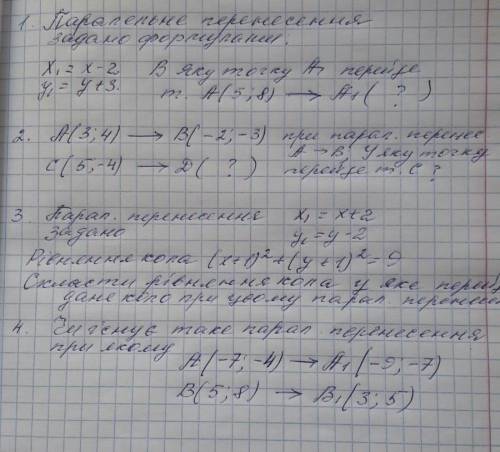 1. Паралельне перенесення
задано формулами.
x₁ = x-2 В яку точку A₁ перейде
y₁ = y+3. т. A(5;8) → A₁( ? )
2. A(3;4) → B(-2;-3) при парал. перене
A→B. У яку точку
C(5;-4) → D( ? ) перейде т. C?
3. Парал. перенесення x₁ = x+2
задано y₁ = y-2
Рівняння кола (x+1)²+(y+1)²=9
Скласти рівняння кола у яке перей
дане коло при цьому парал. перенесен
4. Чи існує таке парал. перенесення
при якому
A(-7;-4) → A₁(-9;-7)
B(5;8) → B₁(3;5)